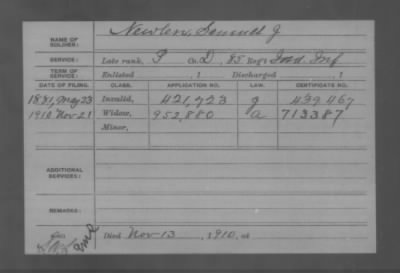 NAME OF SOLDIER: Newlin, Samuel J.
SERVICE: Late rank, P Co. D, 85 Reg't Ind. Inf.
TERM OF SERVICE: Enlisted , 1 Discharged , 1
DATE OF FILING. CLASS. APPLICATION NO. LAW. CERTIFICATE NO.
1881, May 23 Invalid, 421,723 g 439467
1910 Nov 21 Widow, 952,880 a 713387
Minor,
ADDITIONAL SERVICES:
REMARKS:
Died Nov 13, 1910, at